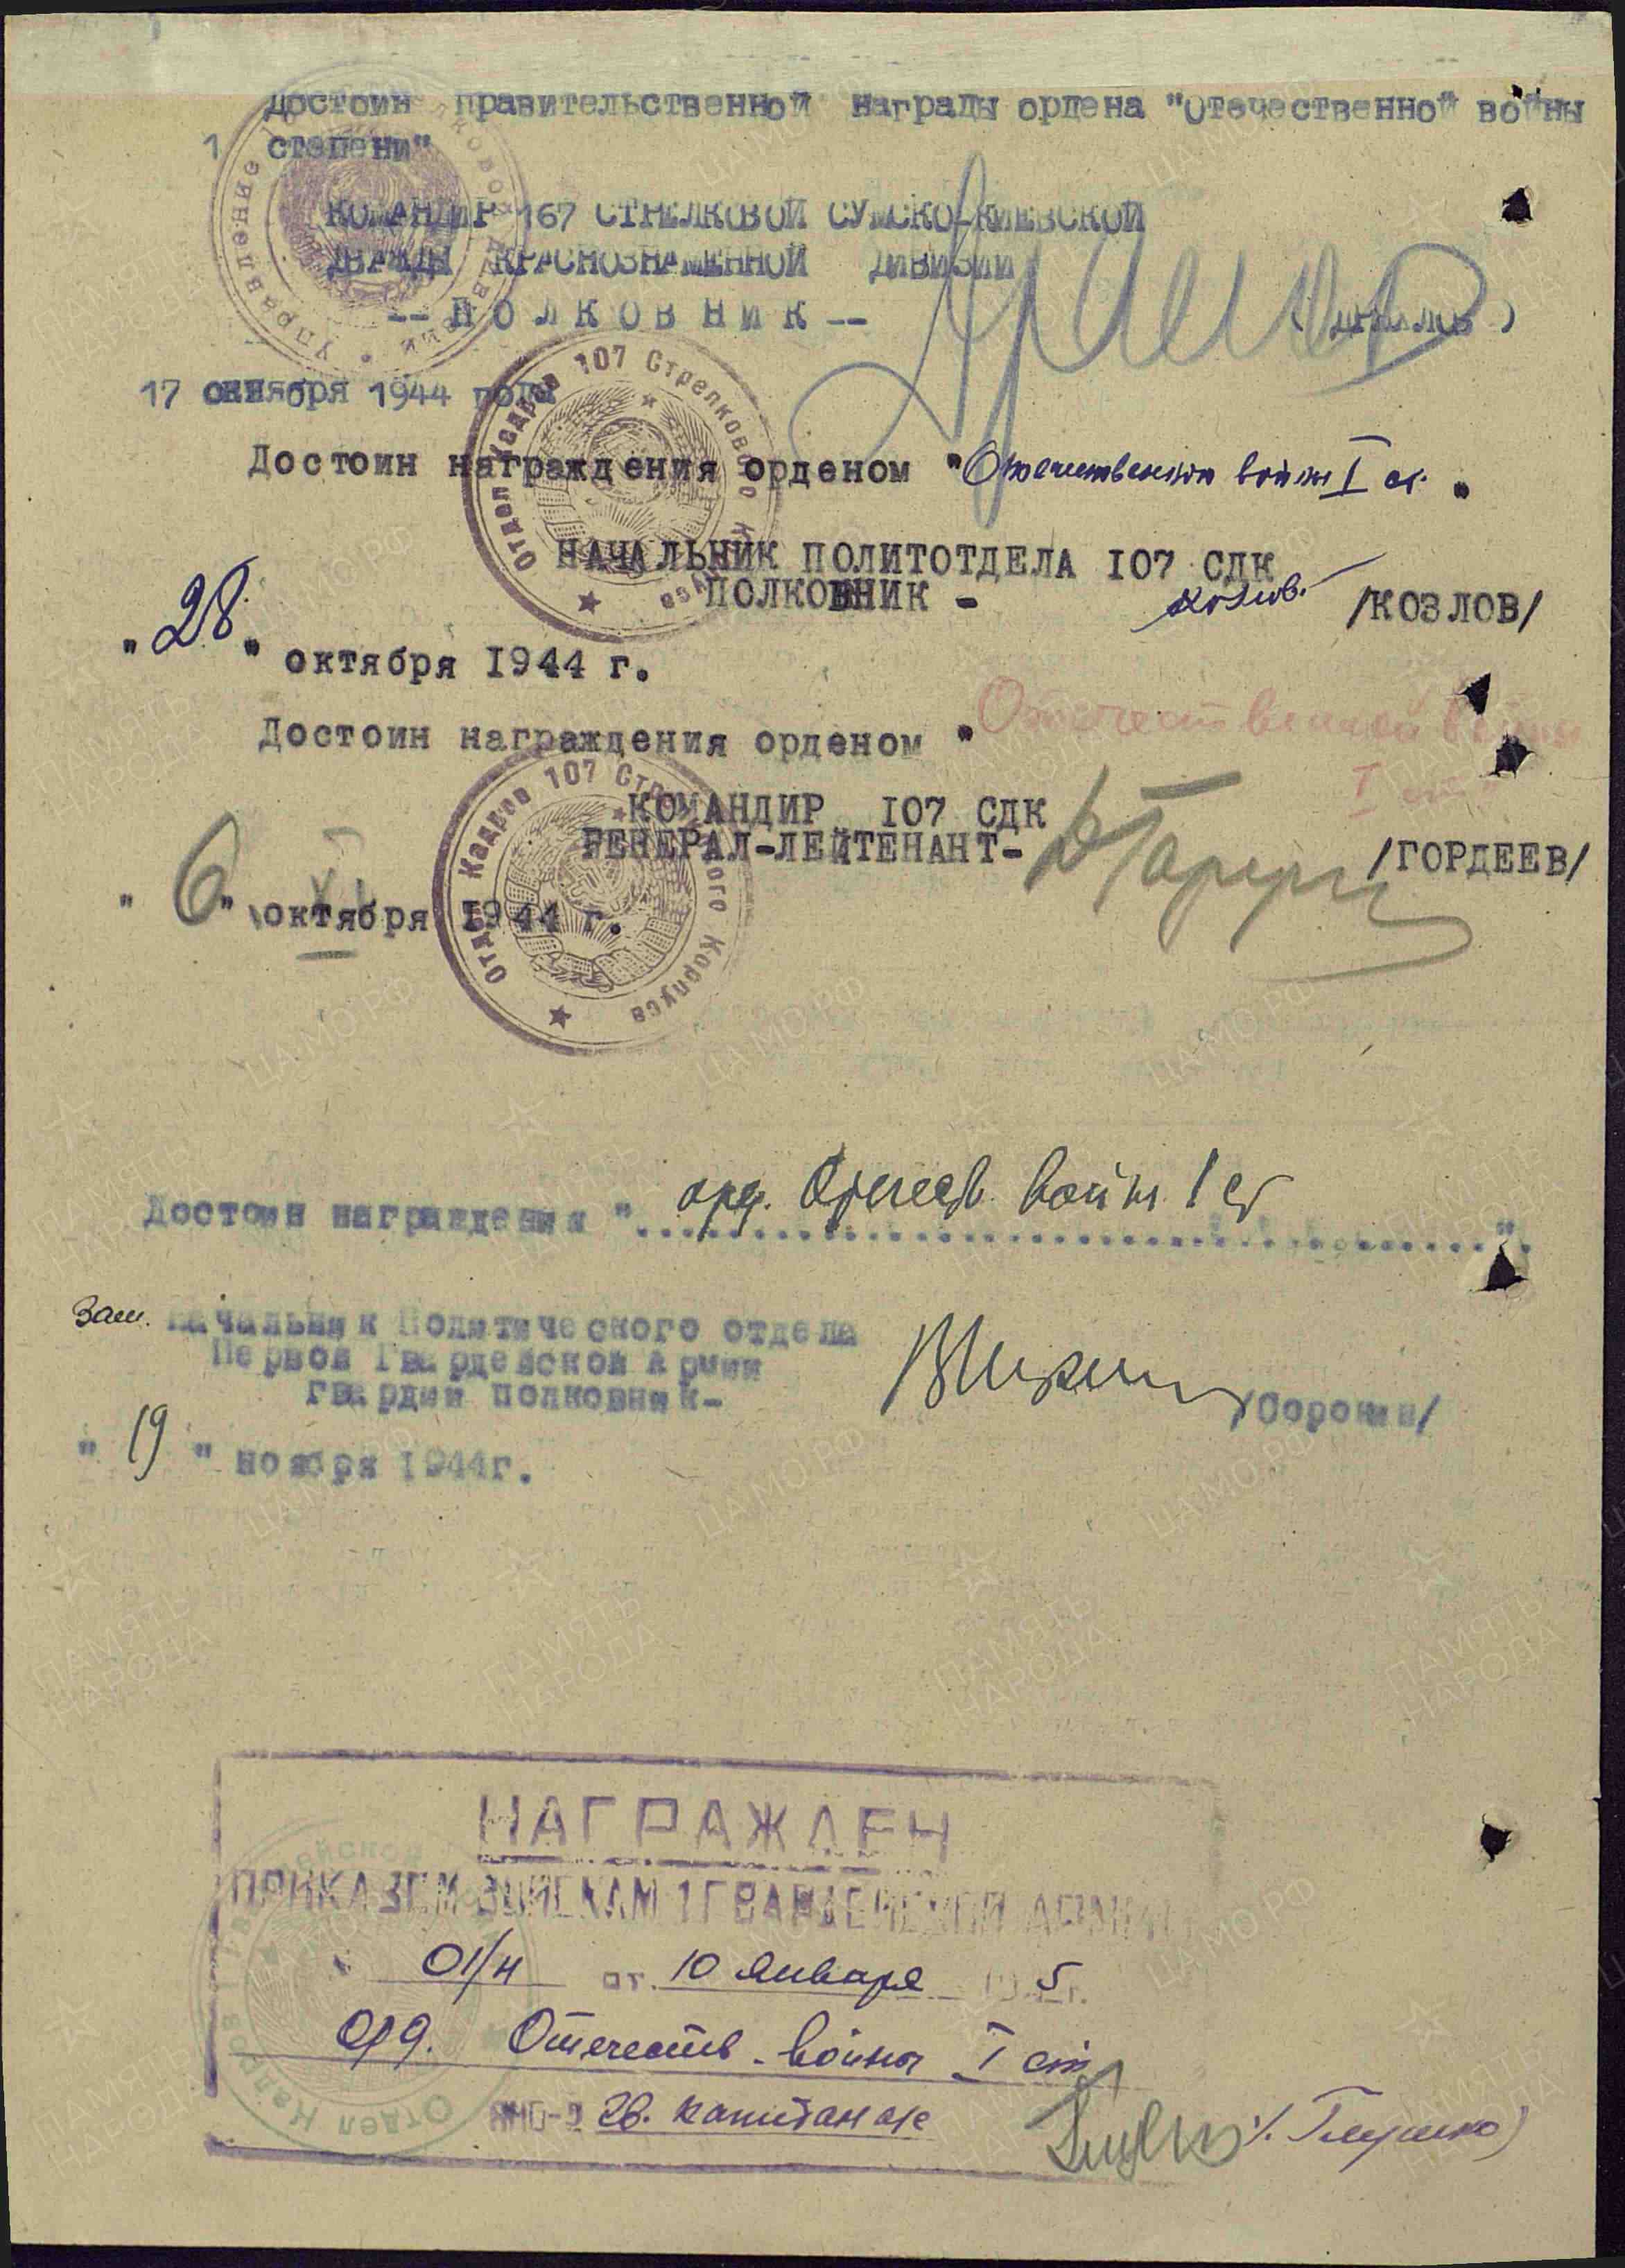 достоин правительственной награды ордена "Отечественной войны
1 степени"
КОМАНДИР 167 СТРЕЛКОВОЙ СУМСКО-КИЕВСКОЙ
ДВАЖДЫ КРАСНОЗНАМЕННОЙ ДИВИЗИИ
-- ПОЛКОВНИК --
17 октября 1944 года
Достоин награждения орденом "Отечественной войны I ст."
НАЧАЛЬНИК ПОЛИТОТДЕЛА 107 СДК
ПОЛКОВНИК - Козлов /КОЗЛОВ/
"28" октября 1944 г.
Отдел Кадров 107 Стрелкового Корпуса
Достоин награждения орденом "Отечественной войны
I ст."
КОМАНДИР 107 СДК
ГЕНЕРАЛ-ЛЕЙТЕНАНТ- /ГОРДЕЕВ/
"6" октября 1944 г.
XI
Отдел Кадров 107 Стрелкового Корпуса
Достоин награждения "орд. Отечеств. войны 1 ст".
Зам. Начальник Политического отдела
Первой Гвардейской Армии
гвардии полковник- /Сорокин/
"19" ноября 1944г.
НАГРАЖДЕН
ПРИКАЗОМ ВОЙСКАМ 1 ГВАРДЕЙСКОЙ АРМИИ
01/н от 10 января 1945г.
орд. Отечеств. войны I ст.
гв. капитан а/с /. Глушко)
ПАМЯТЬ НАРОДА
ЦА МО РФ